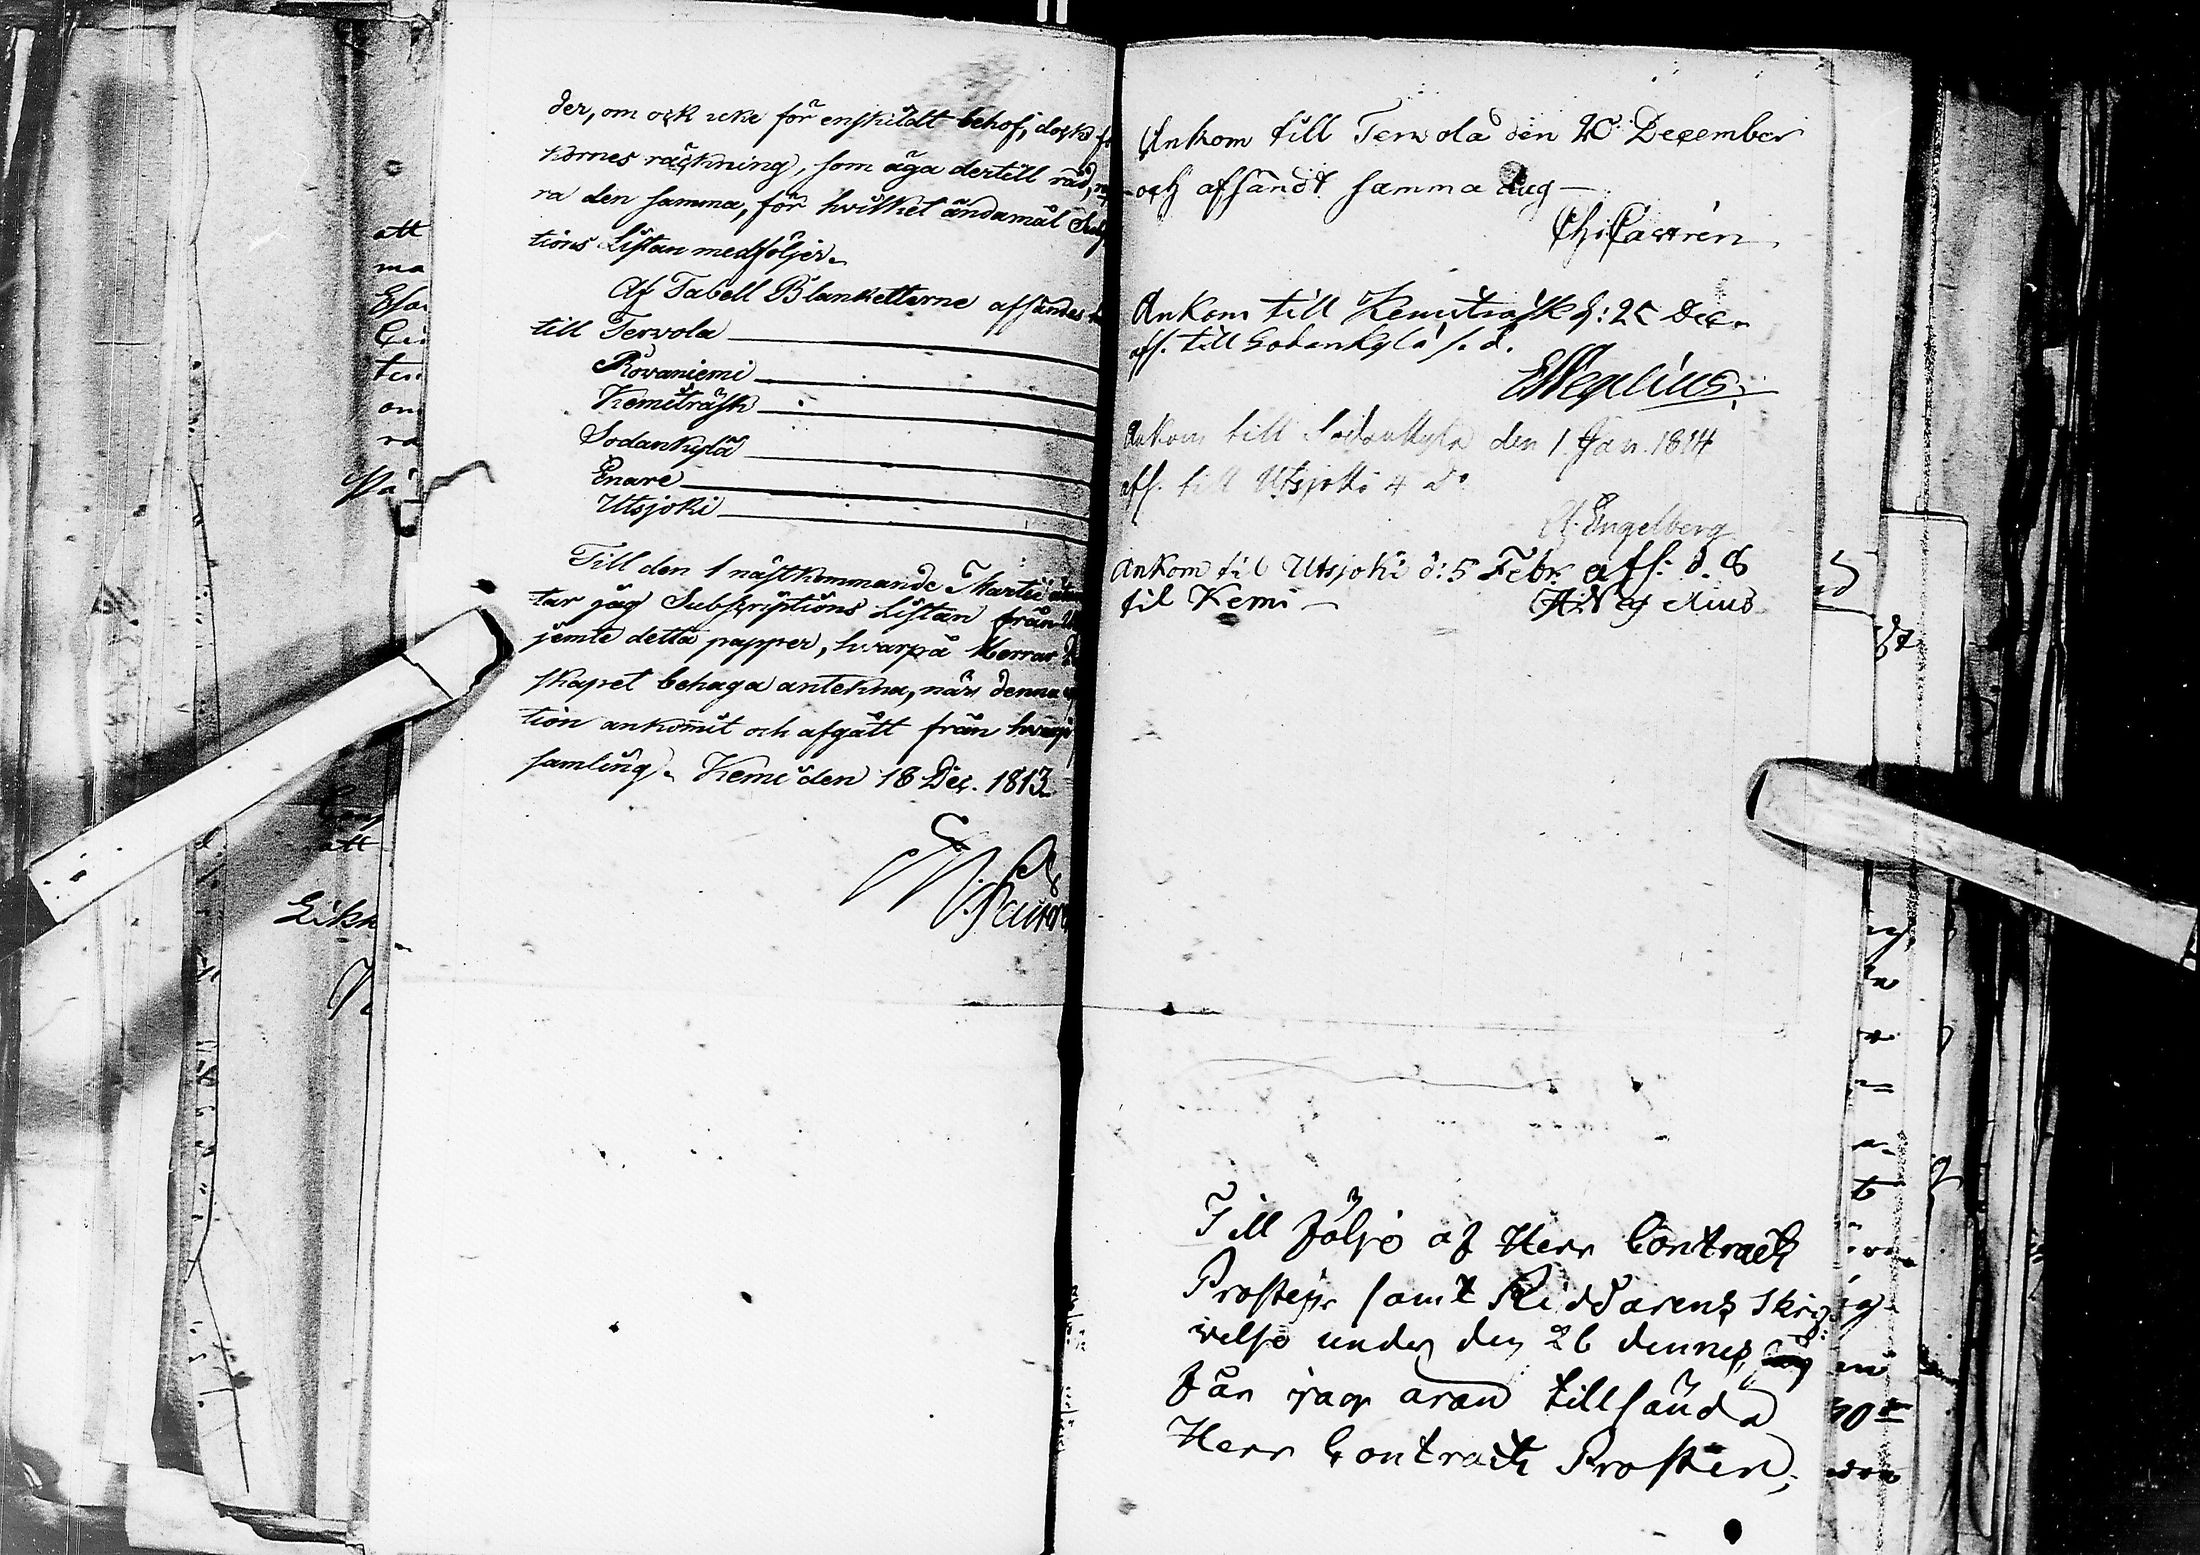 der, om ock icke för enskildt behof, dock
kornes räckning, som äga dertill råd,
ra den samma, för hvilket ändamål Sub
tions Listan medföljer.
Af Tabell Blanketterne afsändes
till Tervola
Rovaniemi
Kemiträsk
Sodankylä
Enare
Utsjoki
Till den 1 nästkommande Martii
tar jag Subskriptions Listan från
jemte detta papper, hvarpå Herrar
skapet behaga antekna, när denna
tion ankommit och afgått från hvarje
samling. Kemi den 18 Dec. 1813
Ankom till Tervola den 20 December
och afsändt samma dag
Castrén
Ankom till Kemiträsk d: 25 Dec.
afs. till Sodankylä s. d.
E Wegelius
Ankom till Sodankylä den 1 Jan. 1814
afs. till Utsjoki 4 do
Engelberg
Ankom til Utsjoki d: 5 Febr. afs: d. 8
til Kemi
Wegelius
Till följe af Herr Contracts
Prosten samt Riddarens skrif
velse under den 26 dennes,
får jag äran tillsända
Herr Contracts Prosten,
att
ma
ten
om
ra
På
att